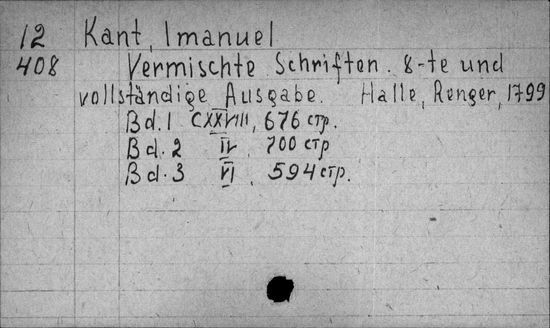 12 Kant, Imanuel
408 Vermischte Schriften. 8-te und
vollständige Ausgabe. Halle, Renger, 1799
Bd. 1 CXXVIII, 676 стр.
Bd. 2 IV 700 стр
Bd. 3 VI, 594 стр.